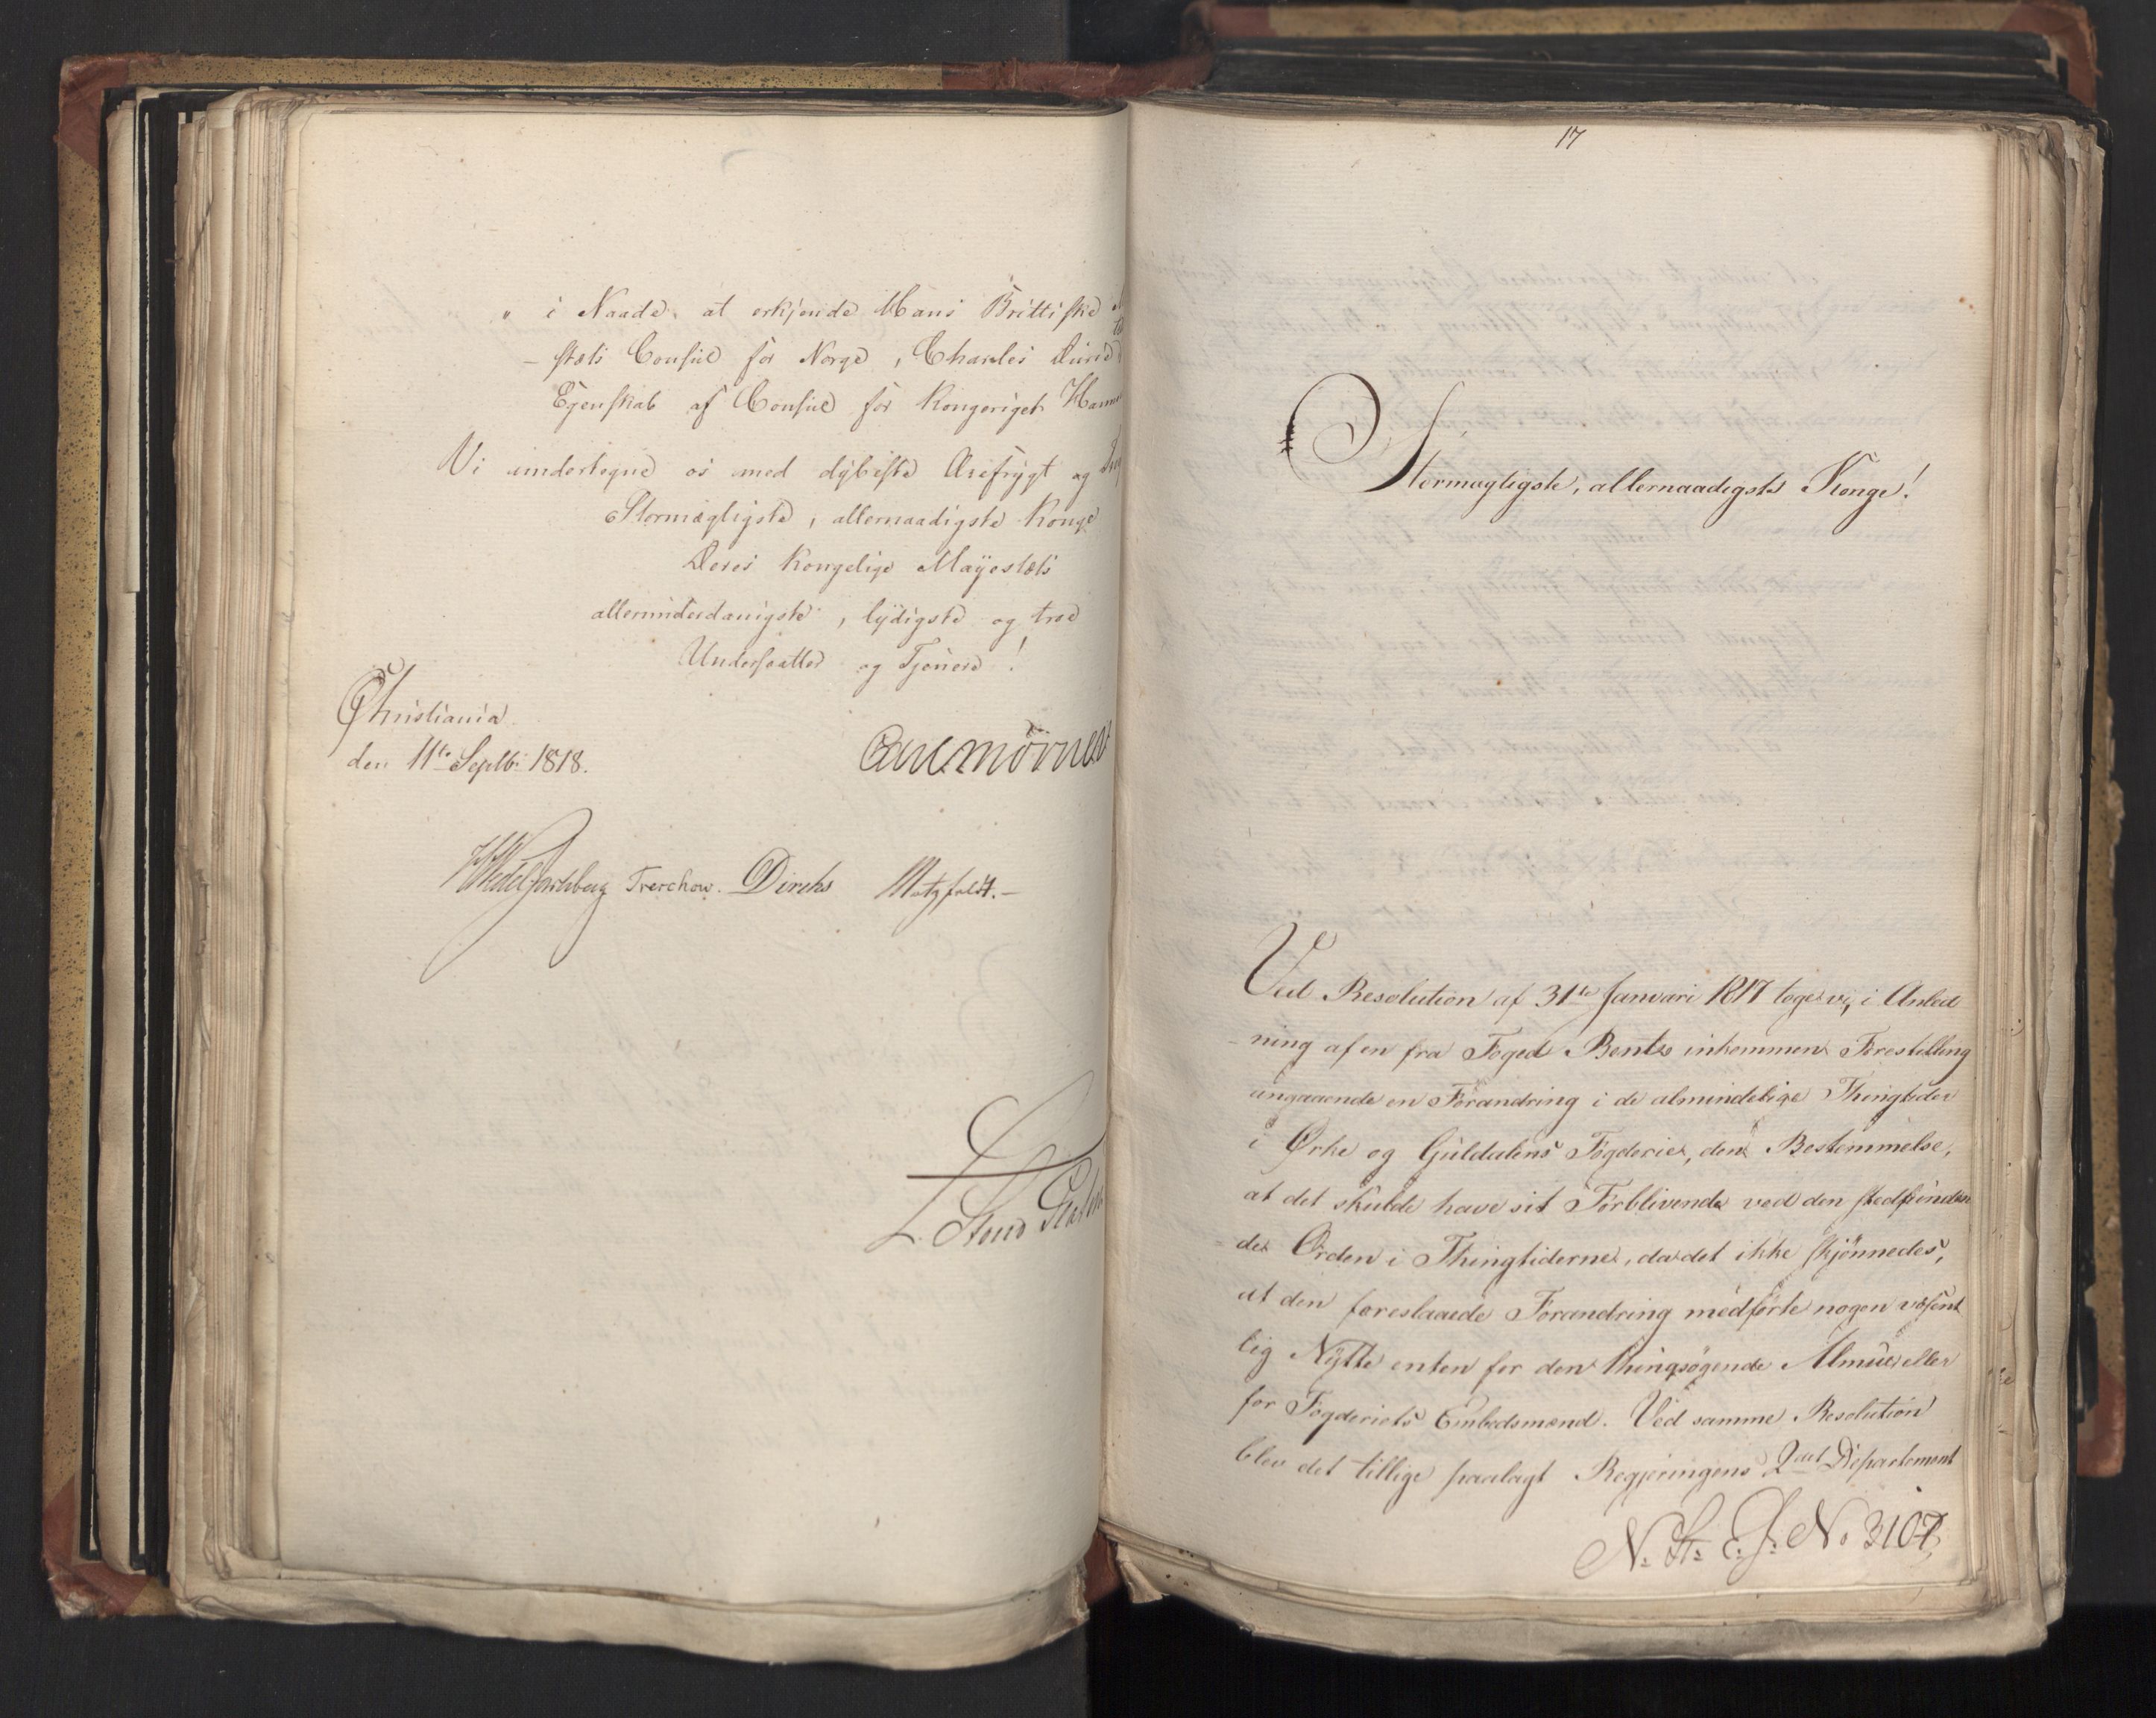 " i Naade at erkjende Hans Brittiske
- stæts Consul for Norge, Charles
Egenskab af Consul for Kongeriget
Vi undertegne os med dybeste Ærefrygt og
Stormægtigste, allernaadigste Konge
Deres Kongelige Mayestæts
allerunderdanigste, lydigste og troe
Undersaatter og Tjenere!
Christiania
den 11te Septbr 1818.
Carl Mörner
HWedel Jarlsberg Treschow. Diriks Motzfeldt.-
L. Stoud Platou
17
Stormægtigste, allernaadigste Konge!
Ved Resolution af 31te Januari 1817 toge vi, i Anled
- ning af en fra Foged Bentz inkommen Forestilling
angaaende en Forandring i de almindelige Thingtider
i Ørke og Guldalens Fogderie, den Bestemmelse,
at det skulde have sit Forblivende ved den stedfinden
- de Orden i Thingtiderne, da det ikke skjønnedes,
at den foreslaaede Forandring medførte nogen væsent
lig Nytte enten for den thingsøgende Almue eller
for Fogderiets Embedsmænd. Ved samme Resolution
blev det tillige paalagt Regjeringens 2det Departement
N. St. E. J. No 3107